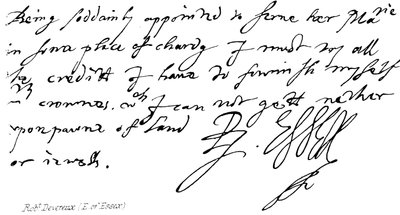 Being soddainly appointed to serve her Matie
in some place of chardg I must try all
the creditt I have to furnish myself
wth crownes. wch I can not gett nether
upon pawne of land
or iewells. R. Essex
Robt Devereux (E. of Essex)